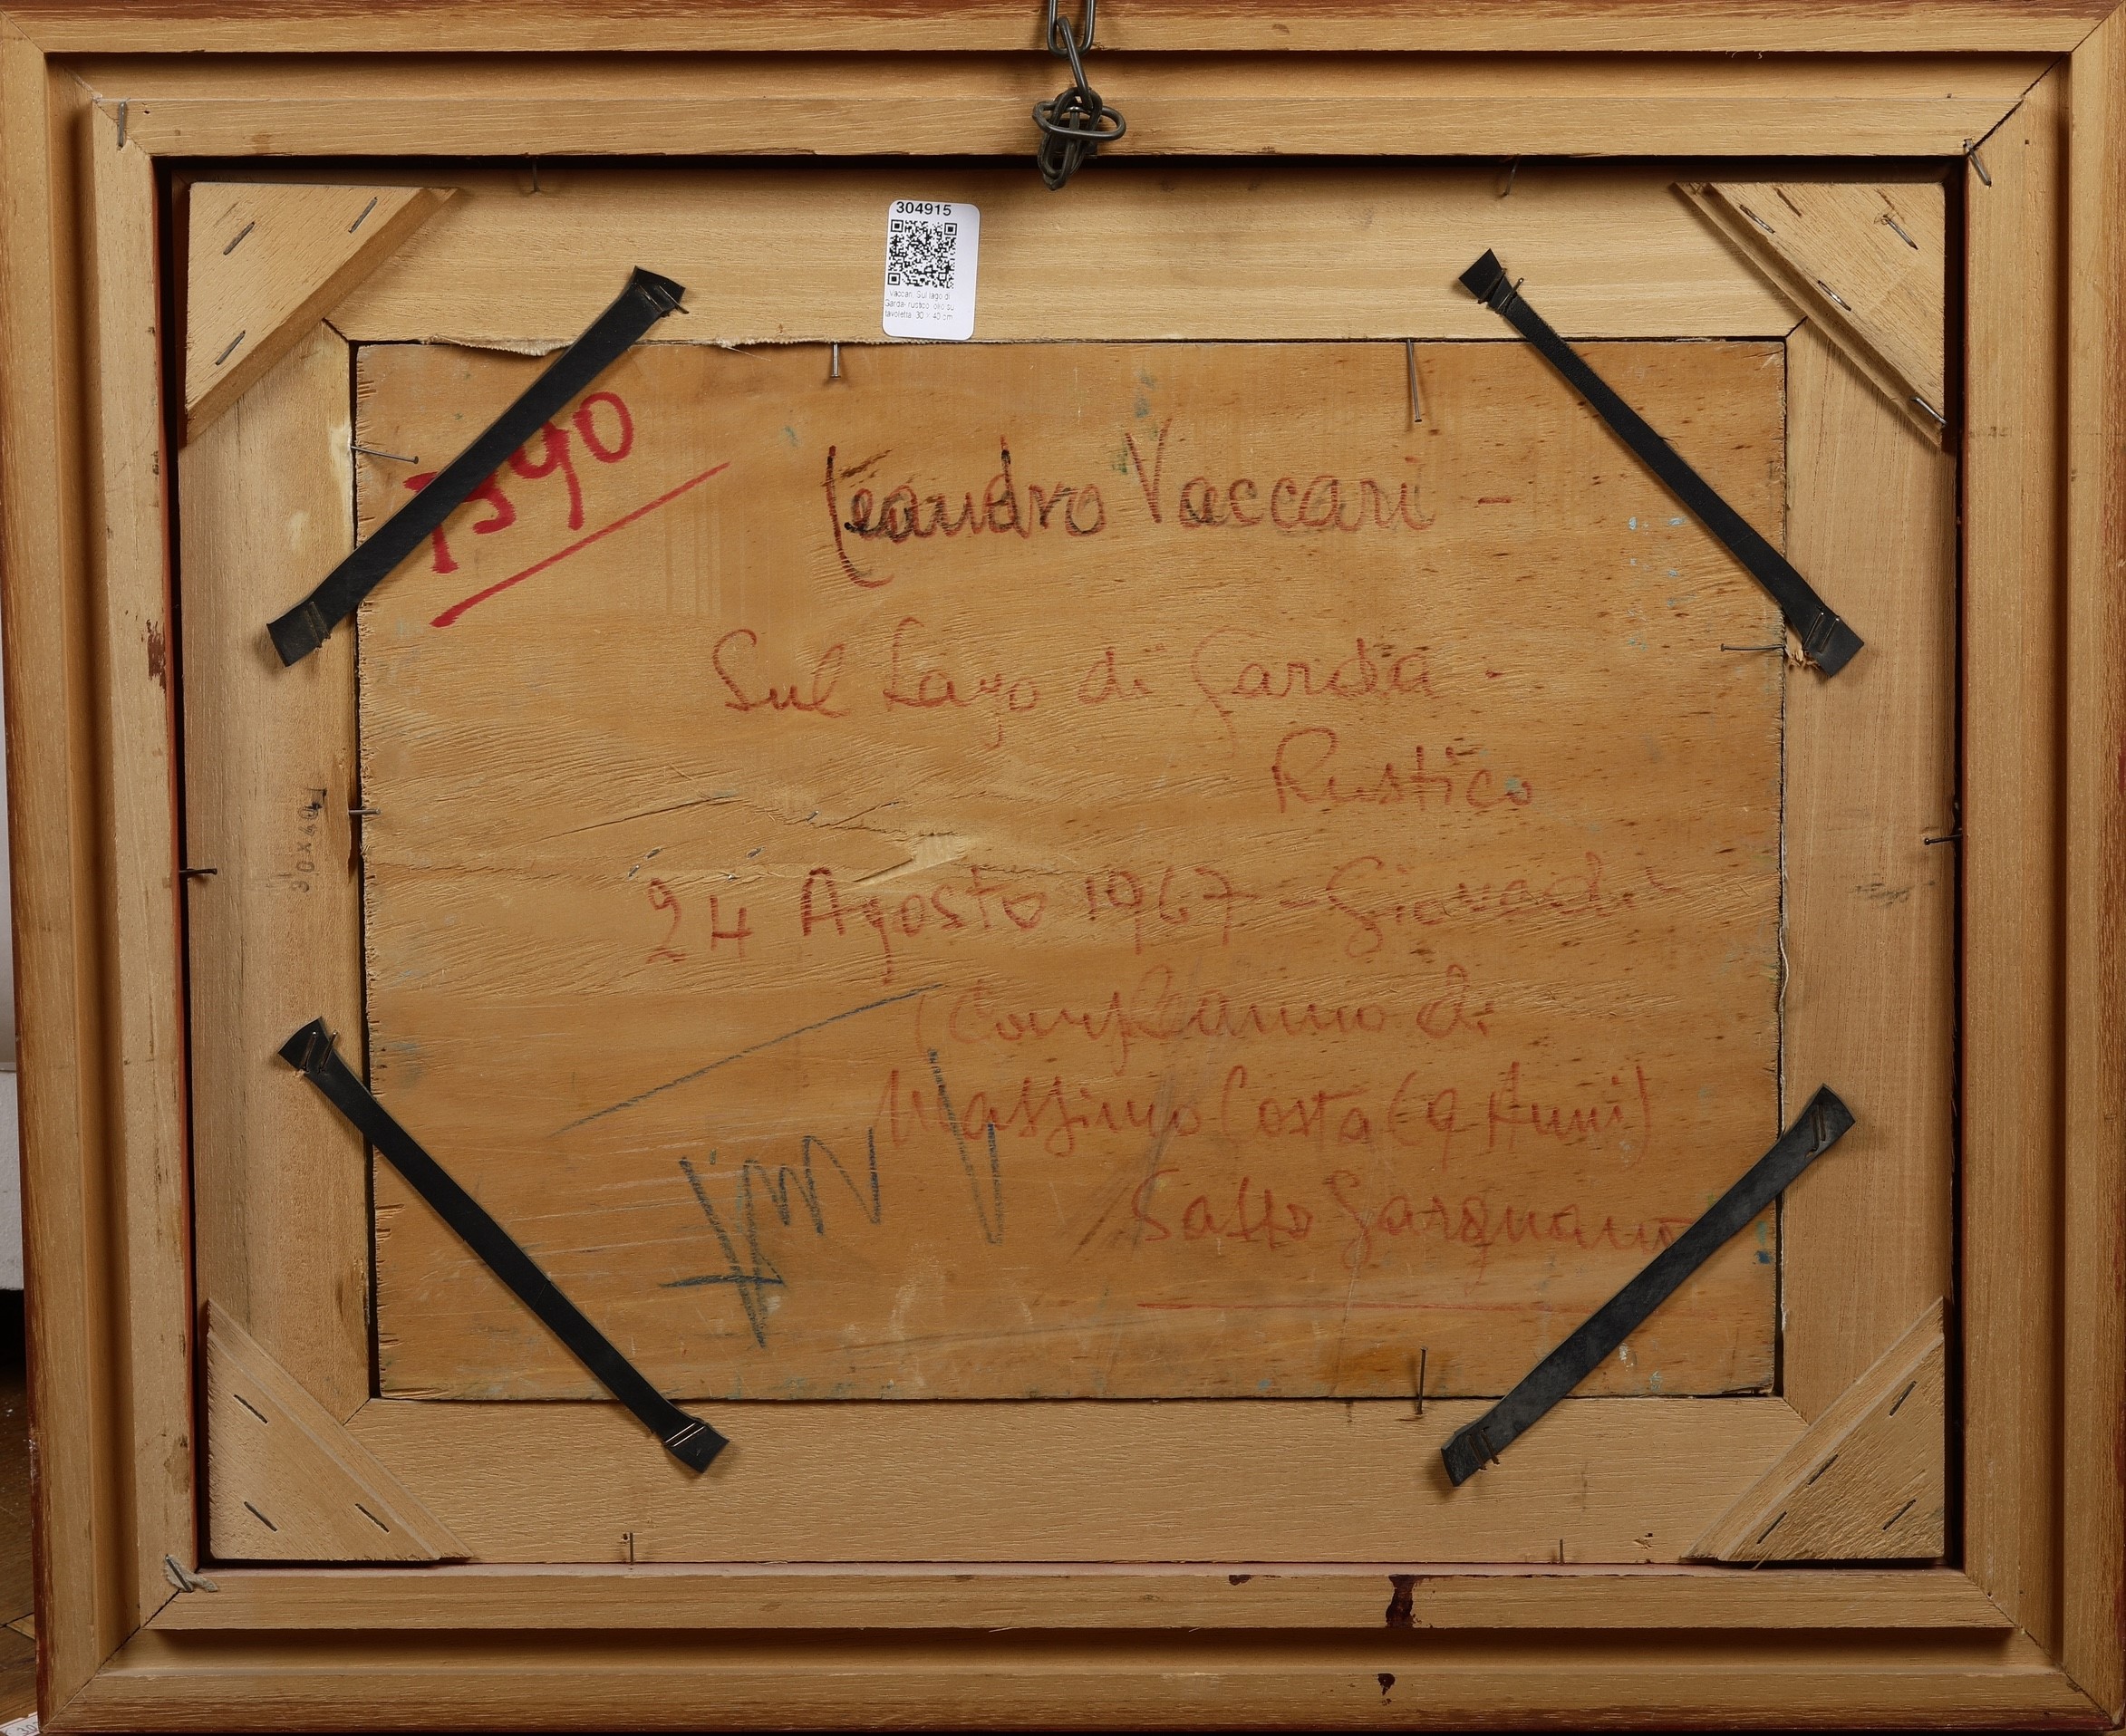 304915
Vaccari, Sul lago di
Garda- rustico, olio su
tavoletta, 30 x 40 cm
Leandro Vaccari -
Sul Lago di Garda -
Rustico
30x40
24 Agosto 1967 - Giovedì
(Compleanno di
Massimo Costa (9 Anni)
Sasso Gargnano